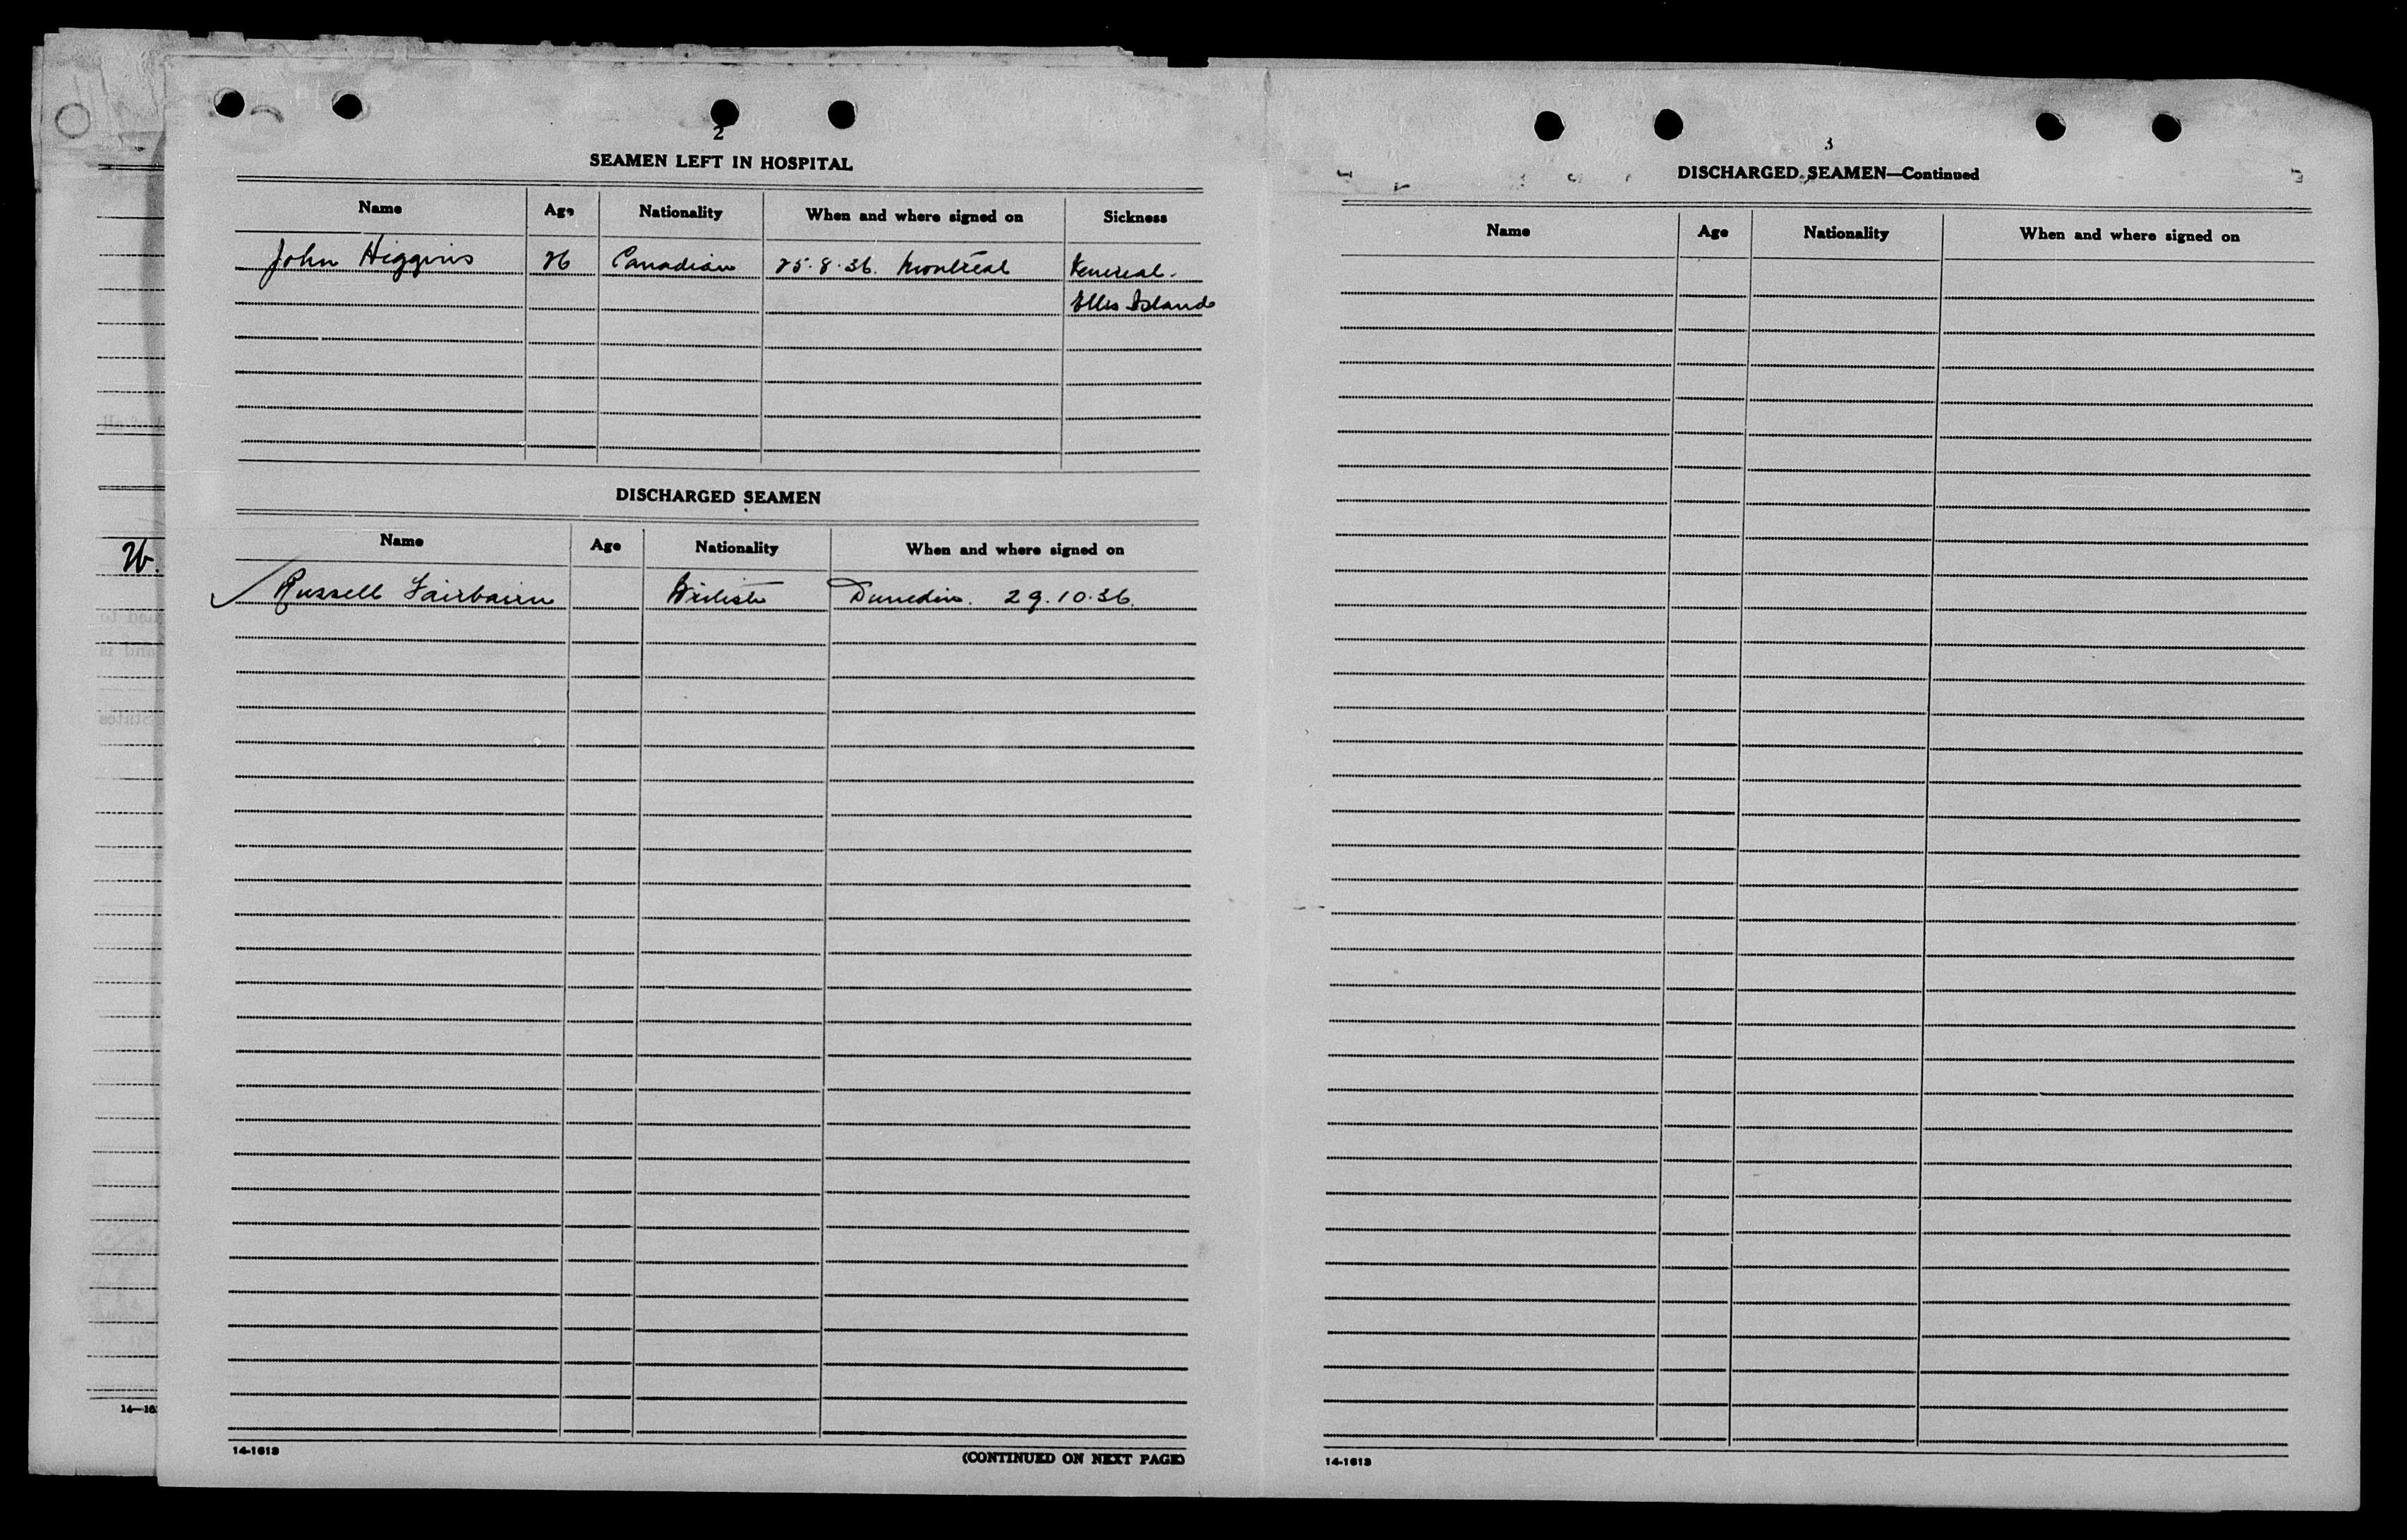 2
SEAMEN LEFT IN HOSPITAL
Name Age Nationality When and where signed on Sickness
John Higgins 26 Canadian 25.8.36. Montreal Venereal.
Ellis Island
DISCHARGED SEAMEN
Name Age Nationality When and where signed on
Russell Fairbairn British Dunedin. 29.10.36.
14-1613
(CONTINUED ON NEXT PAGE)
3
DISCHARGED SEAMEN—Continued
Name Age Nationality When and where signed on
14-1613